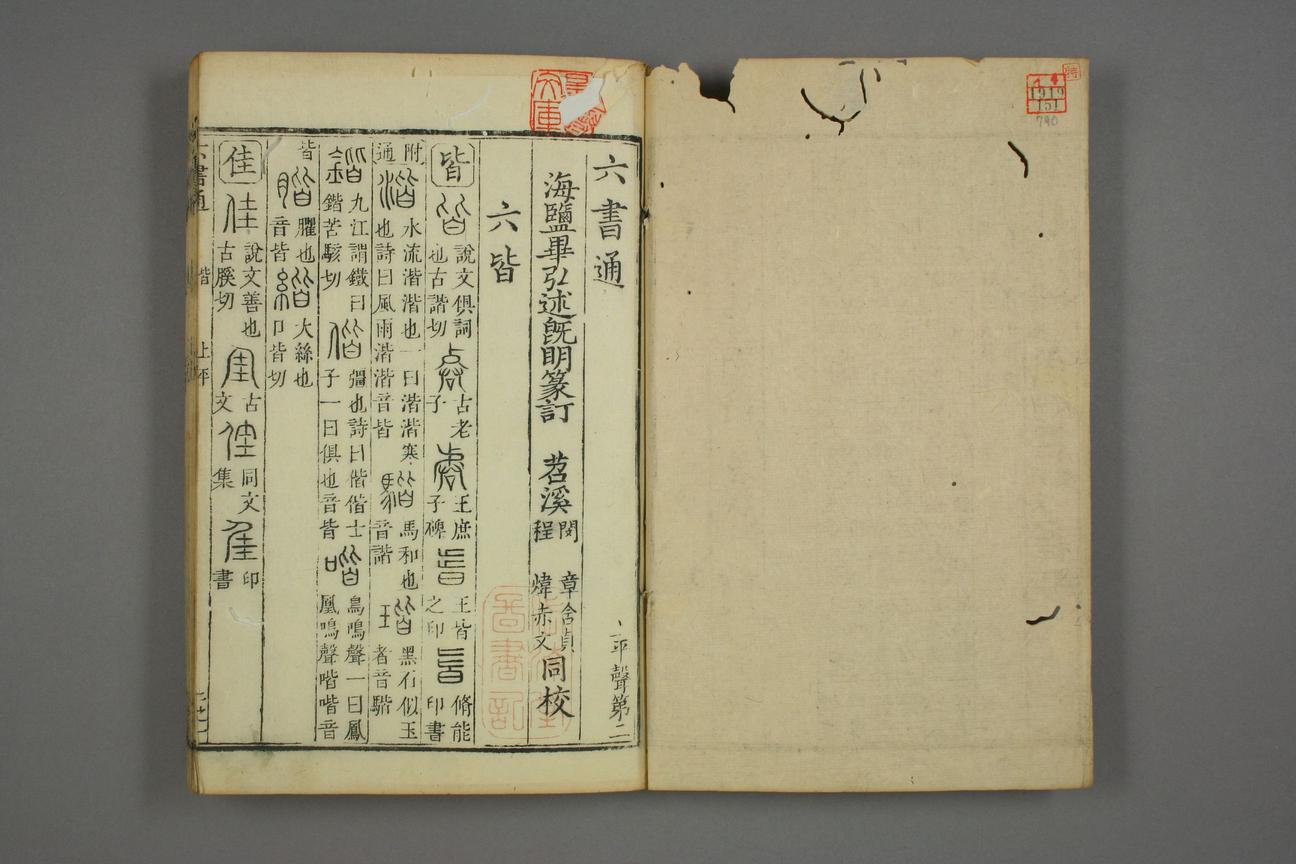 六書通
上平聲第二
海鹽畢弘述旣明篆訂 苕溪 閔章含貞 程煒赤文 同校
六皆
皆 說文俱詞也古諧切 古老子 王庶子碑 王皆之印 脩能印書
附通 湝 水流湝湝也一曰湝湝寒也詩曰風雨湝湝音皆 馬和也音諧 黑石似玉者音騢
鍇 九江謂鐵曰鍇苦駭切 偕 彊也詩曰偕偕士子一曰俱也音皆 喈 鳥鳴聲一曰鳳凰鳴聲喈喈音
皆 臞也音皆 大絲也口皆切
佳 說文善也古膎切 古文 同文集 印書
六書通 皆 上平
1919
151
790